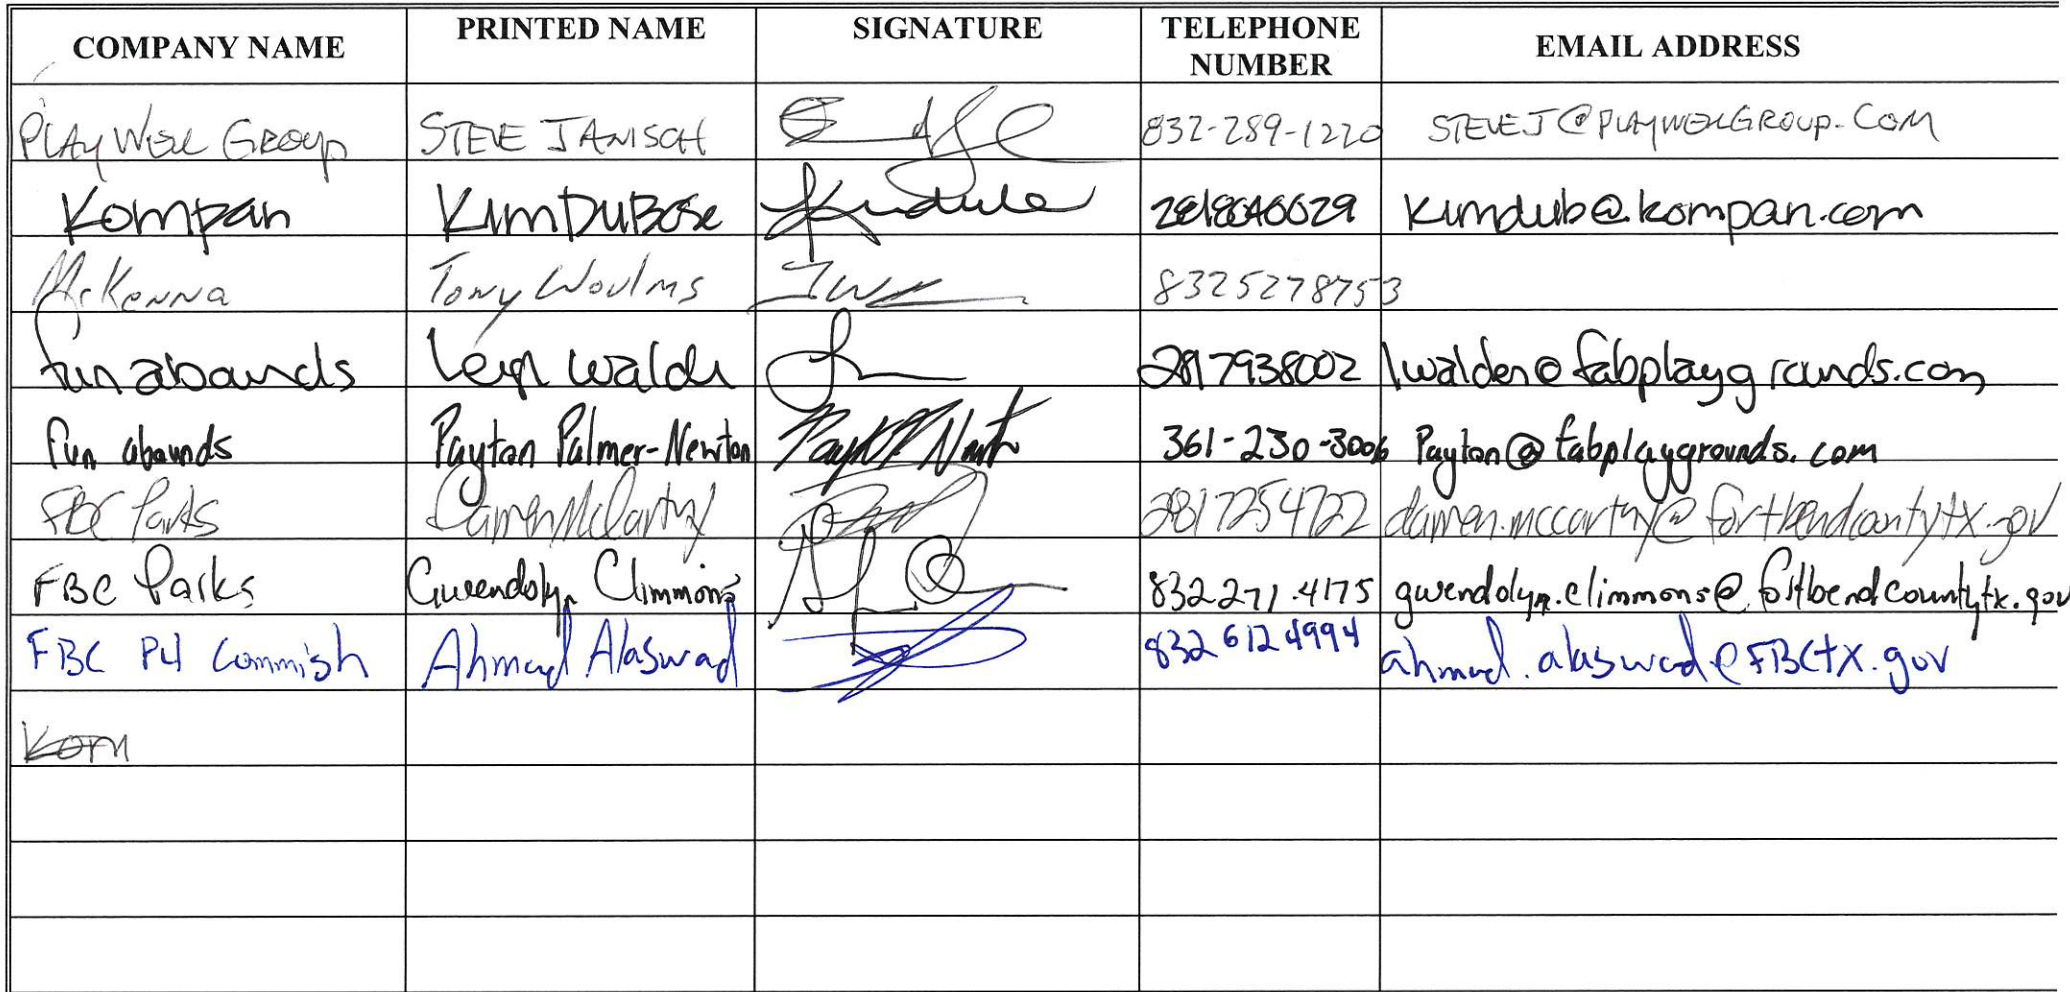 COMPANY NAME PRINTED NAME SIGNATURE TELEPHONE NUMBER EMAIL ADDRESS
PLAYWELL GROUP STEVE JANISCH 832-289-1220 STEVEJ@PLAYWELLGROUP.COM
Kompan KIM DUBOSE kimdub@kompan.com
McKenna Tony Woulms 8325278753
fun abounds Leigh Walden 2817938002 lwalden@fabplaygrounds.com
fun abounds Payton Palmer-Newton 361-230-3006 Payton@fabplaygrounds.com
FBC Parks Darren McCarthy 2817254722
FBC Parks Gwendolyn Climmons 832.271.4175 gwendolyn.climmons@fortbendcountytx.gov
FBC P4 Commish Ahmad Alaswad 832 612 4994 ahmad.alaswad@FBCtx.gov
Kom